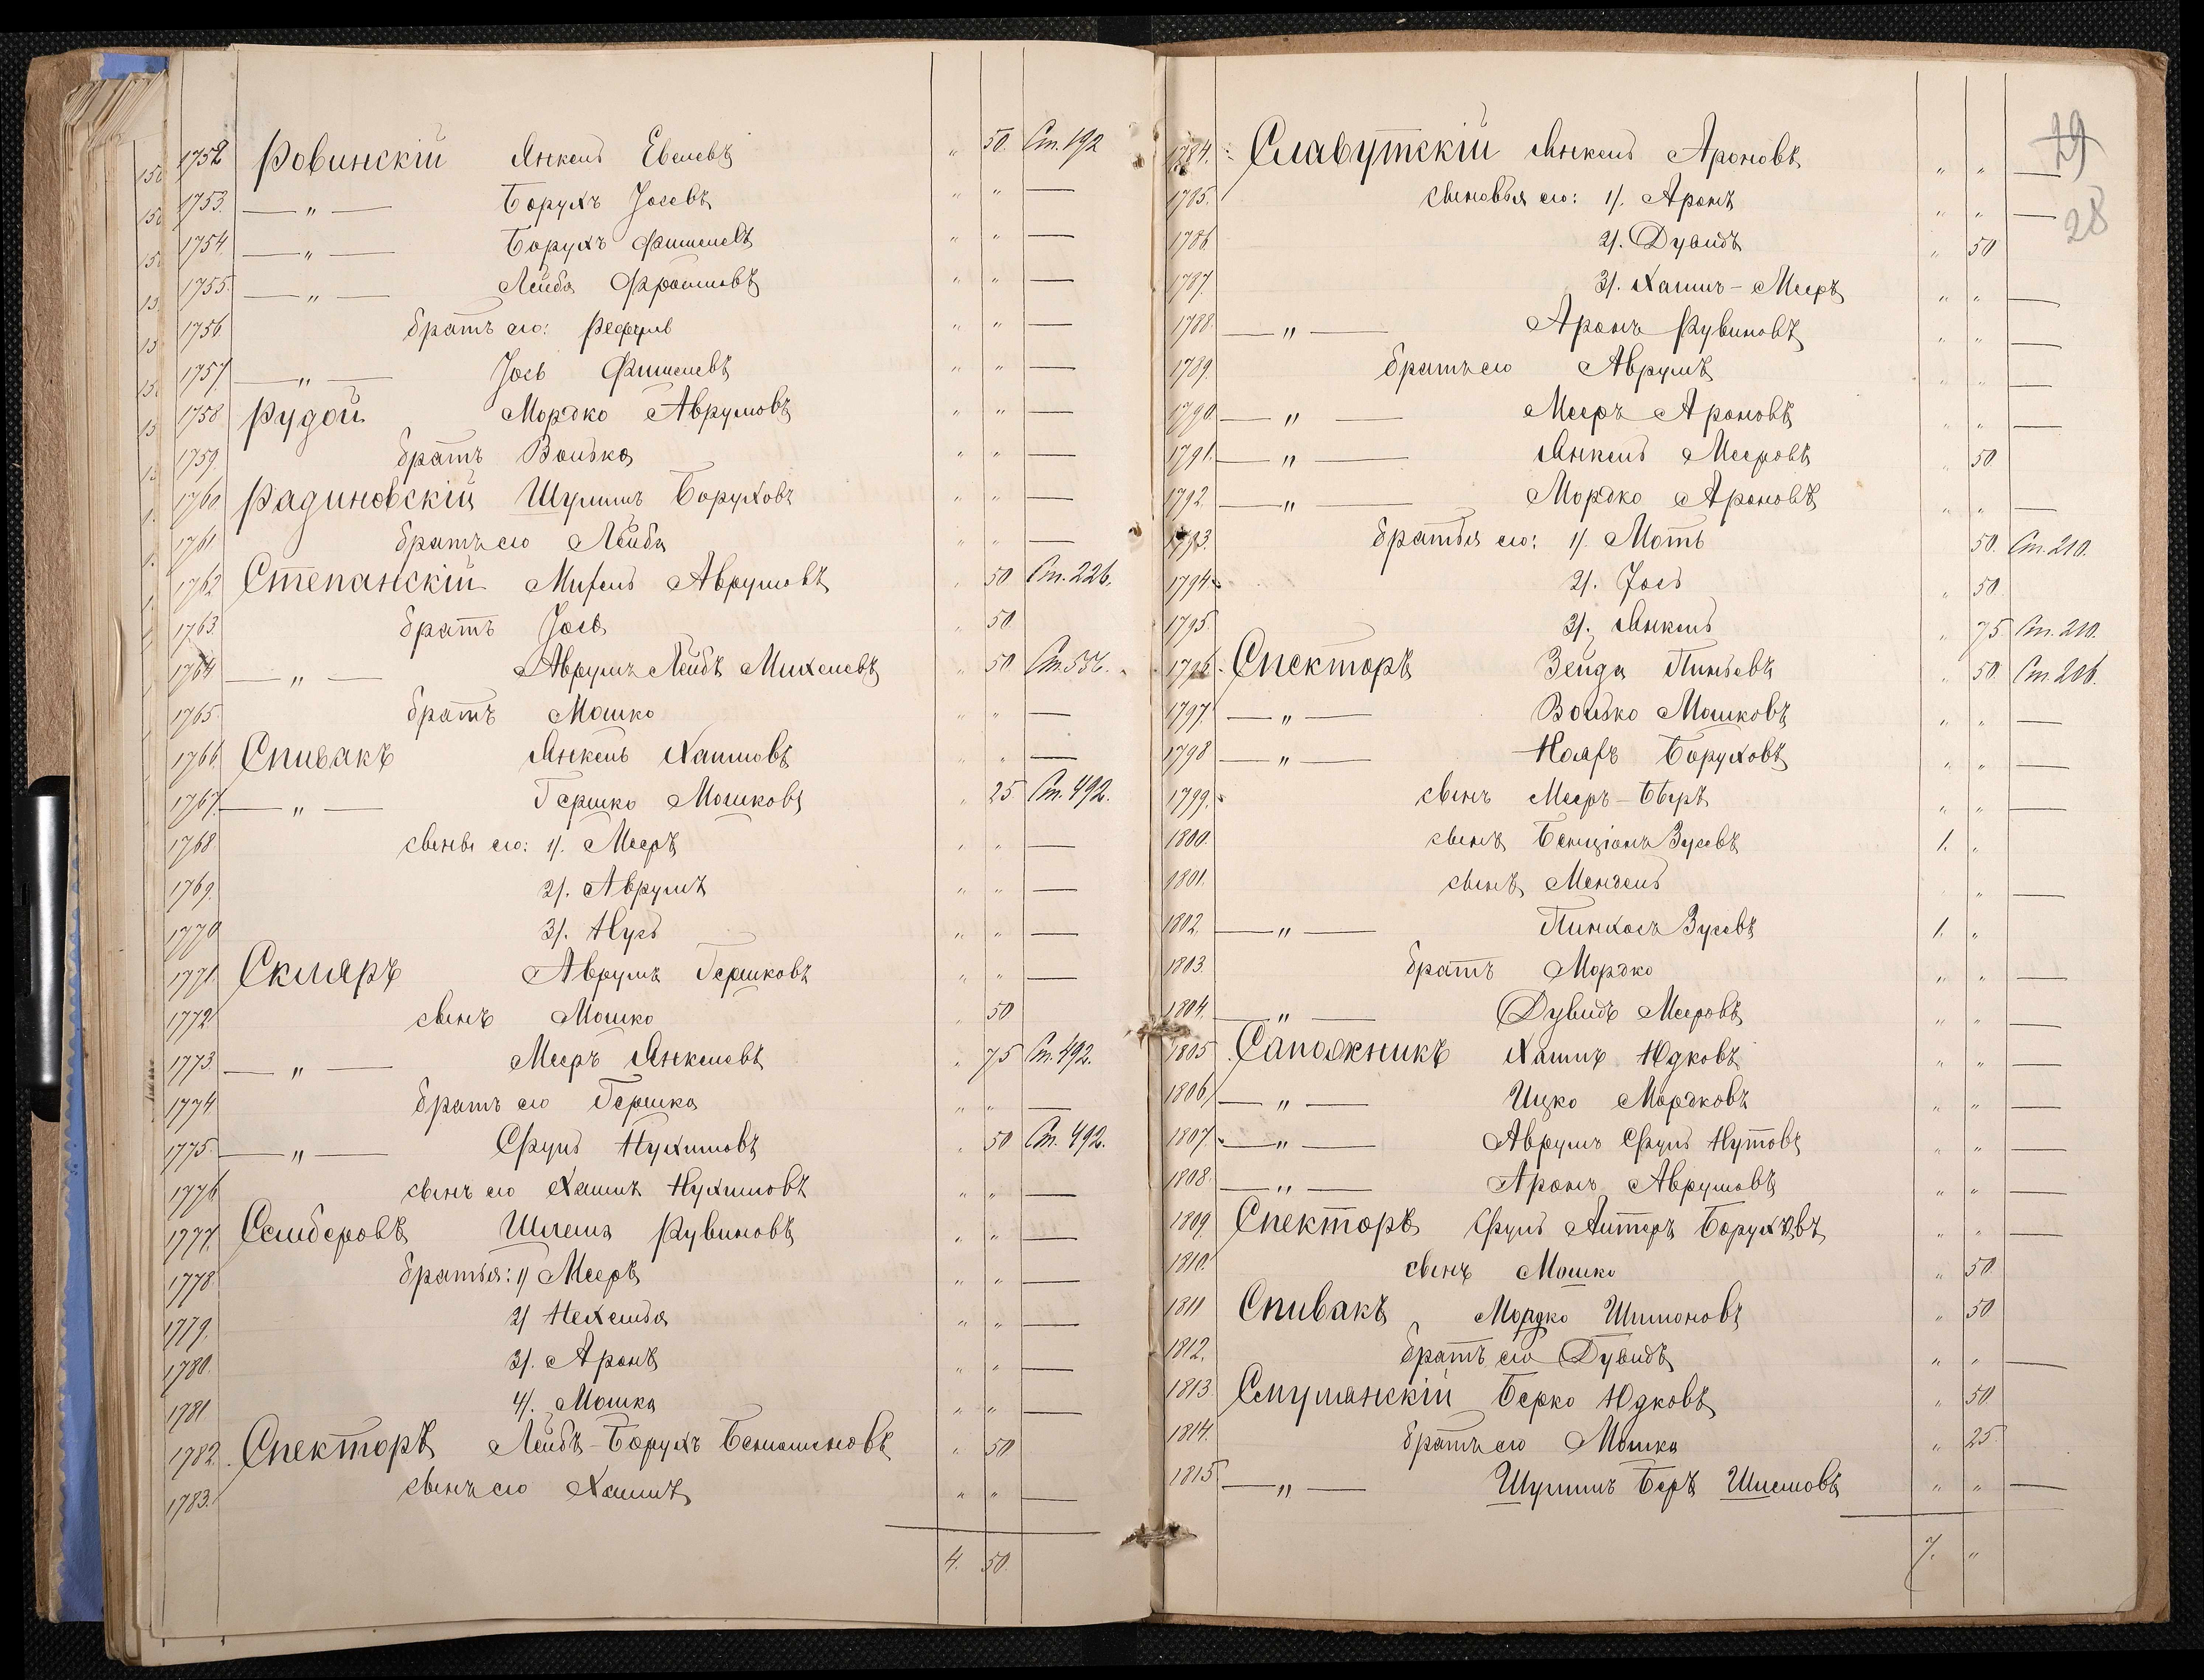 1752 Ровинскій Янкель Евелевъ " 50. Ст. 192
1753. — " — Борухъ Іосевъ " " —
1754. — " — Борухъ Фишелевъ " " —
1755. — " — Лейба Фроимовъ " " —
1756. братъ его: Рефулъ " " —
1757 — " — Іось Фишелевъ " " —
1758 Рудой Мордко Аврумовъ " " —
1759. братъ Волько " " —
1760 Радиновскій Шулимъ Боруховъ " " —
1761 братъ его Лейба " " —
1762 Степанскій Михель Аврумовъ " 50 Ст. 226.
1763. братъ Іось " 50
1764 — " — Аврумъ Лейбъ Михелевъ " 50 Ст. 556.
1765. братъ Мошко " " —
1766 Спивакъ Янкель Хаимовъ " " —
1767. — " — Гершко Мошковъ " 25 Ст. 492.
1768. сыны его: 1/. Мееръ " " —
1769. 2/. Аврумъ " " —
1770 3/. Нусъ " " —
1771. Скляръ Аврумъ Гершковъ " " —
1772. сынъ Мошко " 50
1773. — " — Мееръ Янкелевъ " 75 Ст. 492.
1774. братъ его Гершко " " —
1775. — " — Сруль Нухимовъ " 50 Ст. 492.
1776 сынъ его Хаимъ Нухимовъ " " —
1777. Сельберовъ Шлема Рувиновъ " " —
1778. братья: 1/ Мееръ " " —
1779. 2/ Нехемья " " —
1780. 3/. Аронъ " " —
1781 4/. Мошка " " —
1782. Спекторъ Лейбъ-Борухъ Беньоминовъ " 50
1783. сынъ его Хаимъ " " —
4. 50.
29
28
1784. Славутскій Янкель Ароновъ " " —
1785. сыновья его: 1/. Аронъ " " —
1786 2/. Дувидъ " 50
1787. 3/. Хаимъ-Мееръ " " —
1788. — " — Аронъ Рувиновъ " " —
1789. братъ его Аврумъ " " —
1790 — " — Мееръ Ароновъ " " —
1791. — " — Янкель Мееровъ " 50
1792. — " — Мордко Ароновъ " " —
1793. братья его: 1/. Моть 50. Ст. 210.
1794 2/. Іось " 50.
1795. 3/. Янкель " 75 Ст. 210.
1796. Спекторъ Зейда Пиньевъ " 50 Ст. 206.
1797. — " — Волько Мошковъ " " —
1798 — " — Ноахъ Боруховъ " " —
1799. сынъ Мееръ-Беръ " " —
1800. сынъ Бенціонъ Зусевъ 1. "
1801. сынъ Мендель " " —
1802. — " — Пинхасъ Зусевъ 1. "
1803. братъ Мордко " " —
1804. — " — Дувидъ Мееровъ " " —
1805 Сапожникъ Хаимъ Юдковъ " " —
1806. — " — Ицко Мордковъ " " —
1807. — " — Аврумъ Сруль Нутовъ " " —
1808. — " — Аронъ Аврумовъ " " —
1809. Спекторъ Сруль Алтеръ Боруховъ " "
1810. сынъ Мошко " 50.
1811 Спивакъ Мордко Шимоновъ " 50
1812. братъ его Дувидъ " " —
1813. Смулянскій Берко Юдковъ " 50.
1814. братъ его Мошка " 25.
1815 — " — Шулимъ Беръ Шлемовъ " " —
7. "